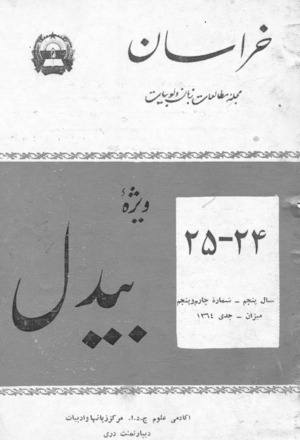 خراسان
مجله مطالعات زبان و ادبیات
ویژهٔ
بیدل
۲۴-۲۵
سال پنجم - شمارهٔ چارم و پنجم
میزان - جدی ۱۳۶۴
اکادمی علوم ج.د.ا. مرکز زبانها و ادبیات
دیپارتمنت دری